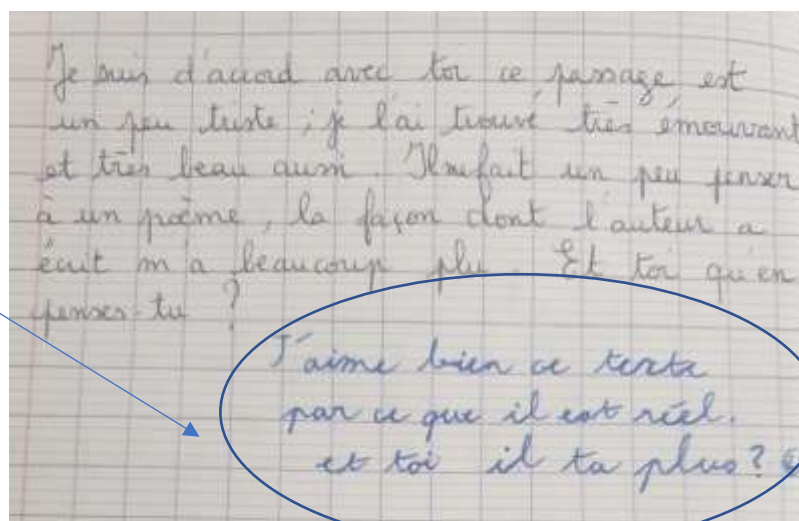 Je suis d'accord avec toi ce passage est
un peu triste ; je l'ai trouvé très émouvant
et très beau aussi. Il me fait un peu penser
à un poème, la façon dont l'auteur a
écrit m'a beaucoup plu. Et toi qu'en
penses-tu ?
J'aime bien ce texte
par ce que il est réel.
et toi il ta plus ?